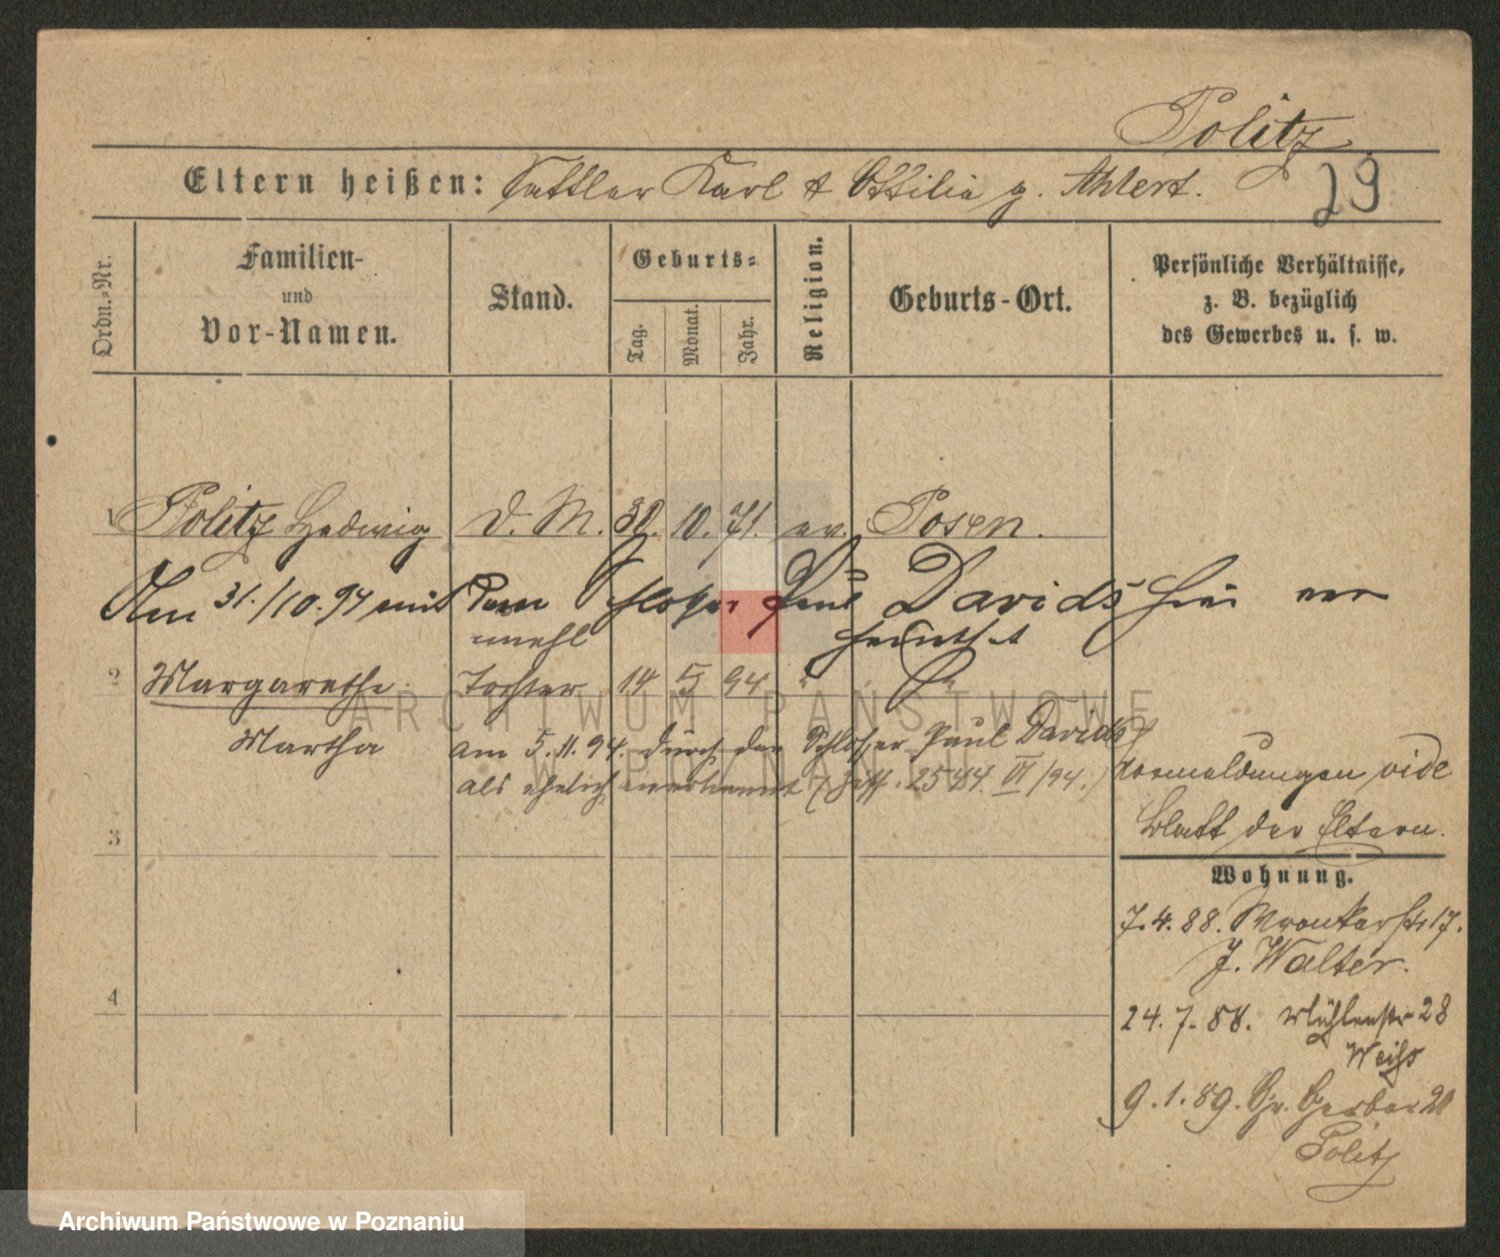 Politz
29
Eltern heißen: Sattler Karl & Ottilie g. Ahlert.
Ordn.-Nr.
Familien-
und
Vor-Namen.
Stand.
Geburts-
Tag.
Monat.
Jahr.
Religion.
Geburts-Ort.
Persönliche Verhältnisse,
z. B. bezüglich
des Gewerbes u. s. w.
1 Politz Hedwig D. M. 30. 10. 71. ev. Posen.
Am 31./10. 94 mit dem Schlosser Paul Davids hier ver
mehl heirathet
2 Margarethe Tochter 14 5 94 " "
Martha
am 5. 11. 94. durch den Schlosser Paul Davids
als ehelich anerkannt (Ziff. 2544. VI/94.)
Vormeldungen vide
Blatt der Eltern.
3
Wohnung.
7. 4. 88. Wronkerstr 17.
J. Walter.
4
24. 7. 88. Mühlenstr 28
Weiss
9. 1. 89. Gr. Gerber 20
Politz
ARCHIWUM PAŃSTWOWE
W POZNANIU
Archiwum Państwowe w Poznaniu